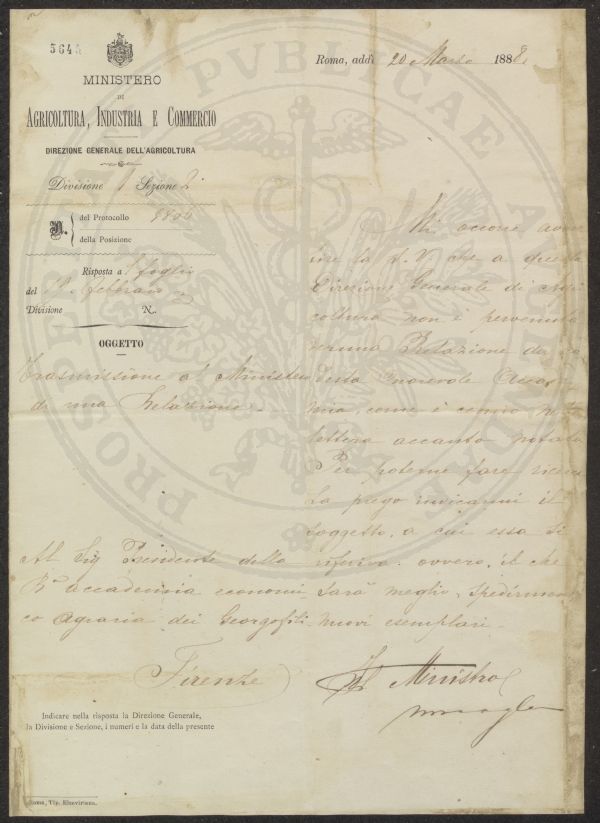 5644
Roma, addì 20 Marzo 1888.
MINISTERO
DI
AGRICOLTURA, INDUSTRIA E COMMERCIO
DIREZIONE GENERALE DELL'AGRICOLTURA
Divisione 1 Sezione 2
N.
del Protocollo
della Posizione
Risposta a foglio
del febbraio
Divisione N.
OGGETTO
Trasmissione al Ministero
di una Relazione.
Al Sig Presidente della
Rª accademia economi
co agraria dei Georgofili
Firenze
Indicare nella risposta la Direzione Generale,
la Divisione e Sezione, i numeri e la data della presente
Roma, Tip. Elzeviriana.
Mi occorre avver
tire la S. V. che a questa
Direzione Generale di Agri
coltura non è pervenuta
veruna Relazione da co
desta Onorevole Accade
mia, come è cenno nella
lettera accanto notata
Per poterne fare ricerca
La prego indicarmi il
soggetto, a cui essa si
riferiva. ovvero, il che
sarà meglio, spedirmene
nuovi esemplari.
Il Ministro
PROSPERITATI PVBLICAE AVGENDAE